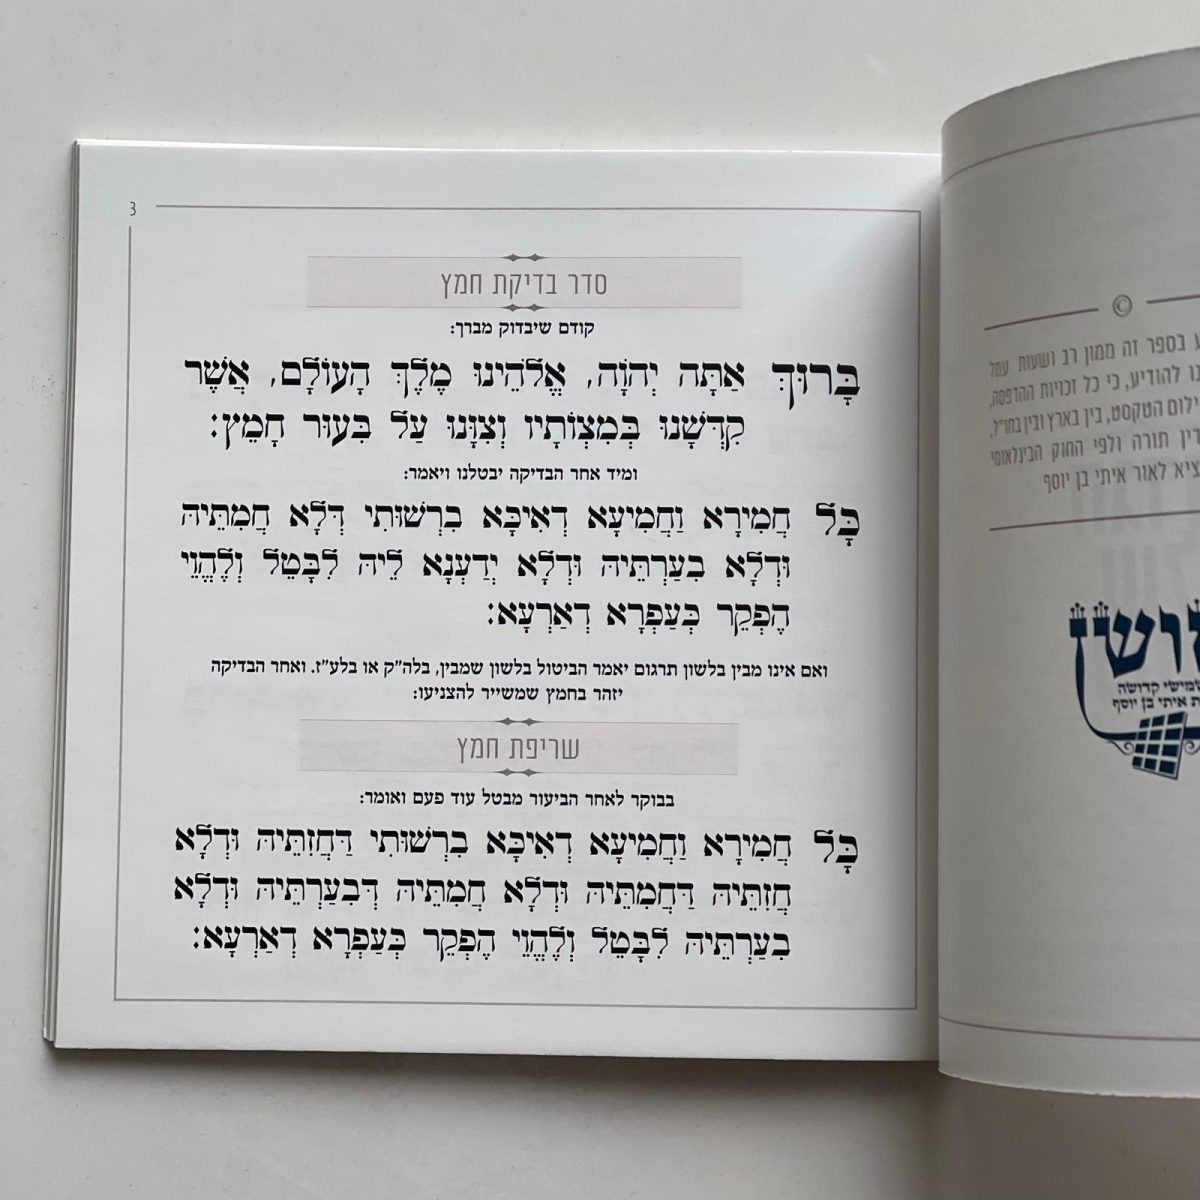 3
סדר בדיקת חמץ
קודם שיבדוק מברך:
בָּרוּךְ אַתָּה יְהֹוָה, אֱלֹהֵינוּ מֶלֶךְ הָעוֹלָם, אֲשֶׁר
קִדְּשָׁנוּ בְּמִצְוֹתָיו וְצִוָּנוּ עַל בִּעוּר חָמֵץ:
ומיד אחר הבדיקה יבטלנו ויאמר:
כָּל חֲמִירָא וַחֲמִיעָא דְאִיכָּא בִרְשׁוּתִי דְּלָא חֲמִתֵּיהּ
וּדְלָא בִעַרְתֵּיהּ וּדְלָא יְדַעְנָא לֵיהּ לִבָּטֵל וְלֶהֱוֵי
הֶפְקֵר כְּעַפְרָא דְאַרְעָא:
ואם אינו מבין בלשון תרגום יאמר הביטול בלשון שמבין, בלה"ק או בלע"ז. ואחר הבדיקה
יזהר בחמץ שמשייר להצניעו:
שריפת חמץ
בבוקר לאחר הביעור מבטל עוד פעם ואומר:
כָּל חֲמִירָא וַחֲמִיעָא דְאִיכָּא בִרְשׁוּתִי דַּחֲזִתֵּיהּ וּדְלָא
חֲזִתֵּיהּ דַּחֲמִתֵּיהּ וּדְלָא חֲמִתֵּיהּ דְּבִעַרְתֵּיהּ וּדְלָא
בִעַרְתֵּיהּ לִבָּטֵל וְלֶהֱוֵי הֶפְקֵר כְּעַפְרָא דְאַרְעָא:
©
בספר זה ממון רב ושעות עמל
להודיע, כי כל זכויות ההדפסה,
הטקסט, בין בארץ ובין בחו"ל,
דין תורה ולפי החוק הבינלאומי
לאור איתי בן יוסף
קדושה
איתי בן יוסף